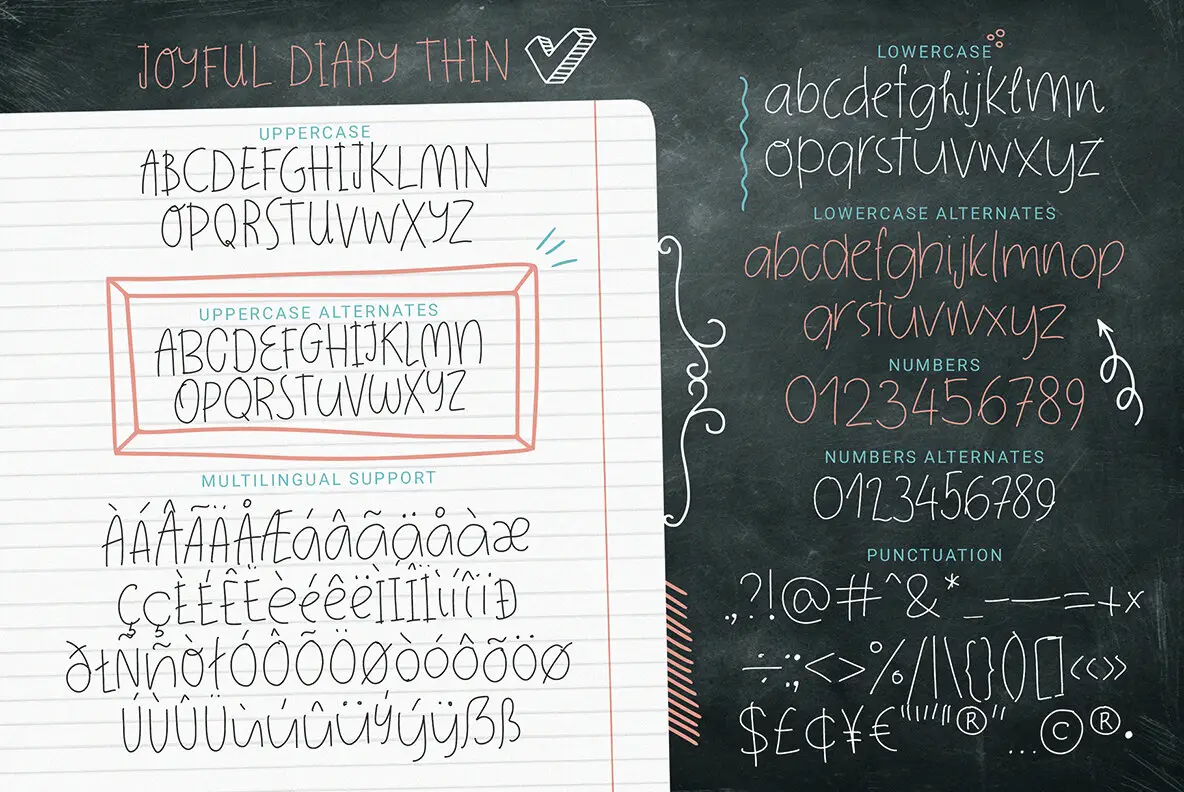 JOYFUL DIARY THIN
UPPERCASE
ABCDEFGHIJKLMN
OPQRSTUVWXYZ
UPPERCASE ALTERNATES
ABCDEFGHIJKLMN
OPQRSTUVWXYZ
MULTILINGUAL SUPPORT
ÀÁÂÃÄÅÆáâãäåàæ
ÇçÈÉÊËèéêëÌÍÎÏìíîïÐ
ðŁÑñÒłÓÔÕÖØòóôõöø
ÚÙÛÜùúûüÝýÿẞß
LOWERCASE
abcdefghijklmn
opqrstuvwxyz
LOWERCASE ALTERNATES
abcdefghijklmnop
qrstuvwxyz
NUMBERS
0123456789
NUMBERS ALTERNATES
0123456789
PUNCTUATION
.,?!@#^&*_–—=+x
÷:;<>%/|\{}()[]«‹›»
$£¢¥€"“”‘’®"…©®.